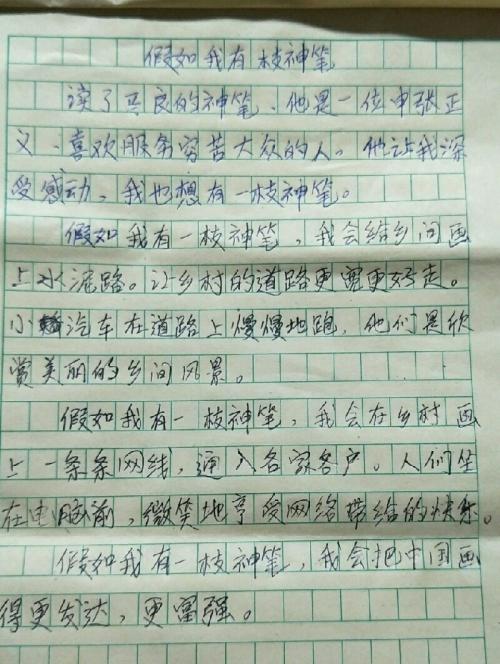 假如我有枝神笔
读了马良的神笔、他是一位申张正
义、喜欢服务穷苦大众的人。他让我深
受感动，我也想有一枝神笔。
假如我有一枝神笔，我会给乡间画
上水泥路。让乡村的道路更宽更好走。
小汽车在道路上慢慢地跑，他们是欣
赏美丽的乡间风景。
假如我有一枝神笔，我会在乡村画
上一条条网线，通入各家客户。人们坐
在电脑前，微笑地享受网络带给的快乐。
假如我有一枝神笔，我会把中国画
得更发达，更富强。